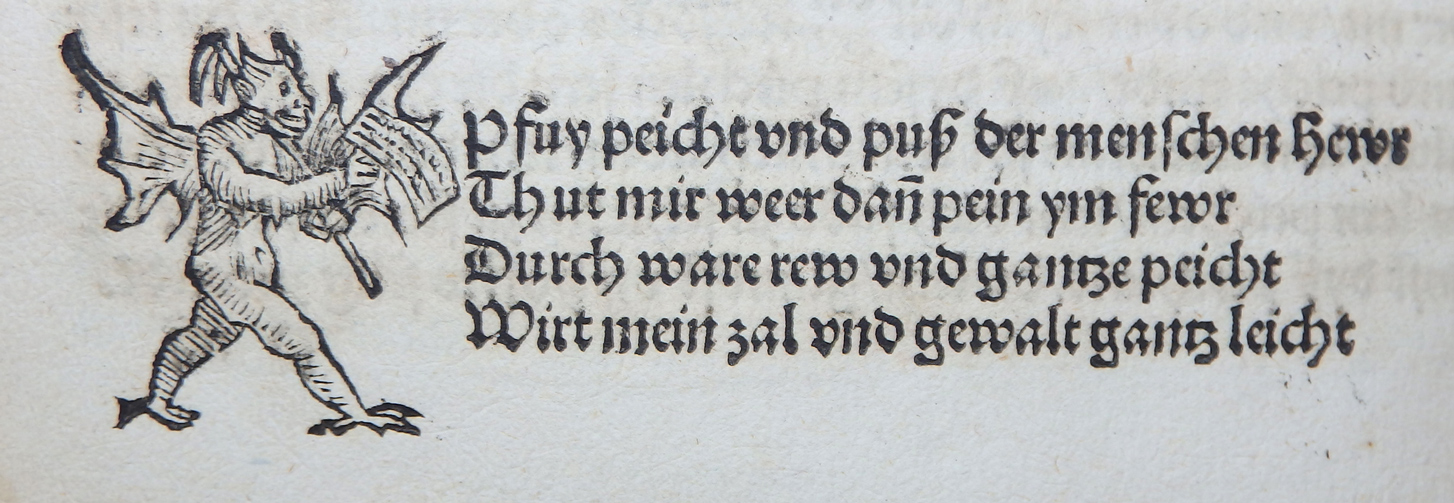 Pfuy peicht vnd puß der menſchen hewr
Thut mir weer dañ pein ym fewr
Durch ware rew vnd gantze peicht
Wirt mein zal vnd gewalt gantz leicht